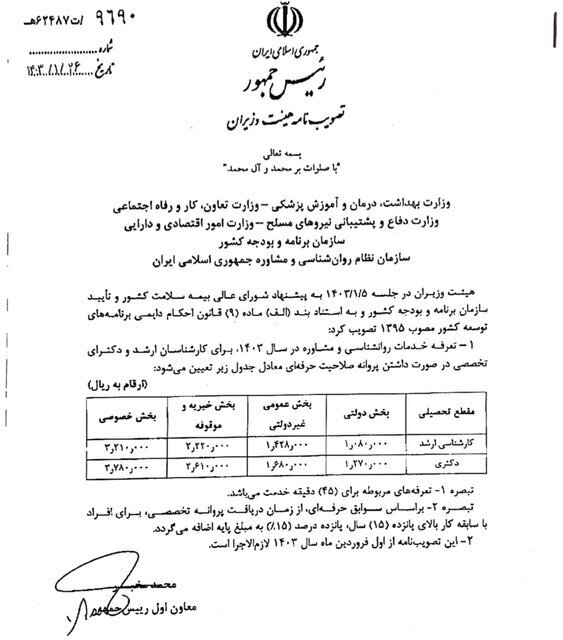 ۹۶۹۰ /ت۶۲۴۸۷هـ
شماره
تاریخ ۱۴۰۳/۱/۲۶
جمهوری اسلامی ایران
رئیس جمهور
تصویب نامه هیئت وزیران
بسمه تعالی
"با صلوات بر محمد و آل محمد"
وزارت بهداشت، درمان و آموزش پزشکی – وزارت تعاون، کار و رفاه اجتماعی
وزارت دفاع و پشتیبانی نیروهای مسلح – وزارت امور اقتصادی و دارایی
سازمان برنامه و بودجه کشور
سازمان نظام روان‌شناسی و مشاوره جمهوری اسلامی ایران
هیئت وزیران در جلسه ۱۴۰۳/۱/۵ به پیشنهاد شورای عالی بیمه سلامت کشور و تأیید
سازمان برنامه و بودجه کشور و به استناد بند (الف) ماده (۹) قانون احکام دایمی برنامه‌های
توسعه کشور مصوب ۱۳۹۵ تصویب کرد:
۱ – تعرفه خدمات روانشناسی و مشاوره در سال ۱۴۰۳، برای کارشناسان ارشد و دکترای
تخصصی در صورت داشتن پروانه صلاحیت حرفه‌ای معادل جدول زیر تعیین می‌شود:
(ارقام به ریال)
مقطع تحصیلی بخش دولتی بخش عمومی غیردولتی بخش خیریه و موقوفه بخش خصوصی
کارشناسی ارشد ۱٫۰۸۰٫۰۰۰ ۱٫۴۲۸٫۰۰۰ ۲٫۲۲۰٫۰۰۰ ۳٫۲۱۰٫۰۰۰
دکتری ۱٫۲۷۰٫۰۰۰ ۱٫۶۸۰٫۰۰۰ ۲٫۶۱۰٫۰۰۰ ۳٫۷۸۰٫۰۰۰
تبصره ۱- تعرفه‌های مربوطه برای (۴۵) دقیقه خدمت می‌باشد.
تبصره ۲- براساس سوابق حرفه‌ای، از زمان دریافت پروانه تخصصی، برای افراد
با سابقه کار بالای پانزده (۱۵) سال، پانزده درصد (۱۵٪) به مبلغ پایه اضافه می‌گردد.
۲- این تصویب‌نامه از اول فروردین ماه سال ۱۴۰۳ لازم‌الاجرا است.
محمد مخبر
معاون اول رییس جمهور